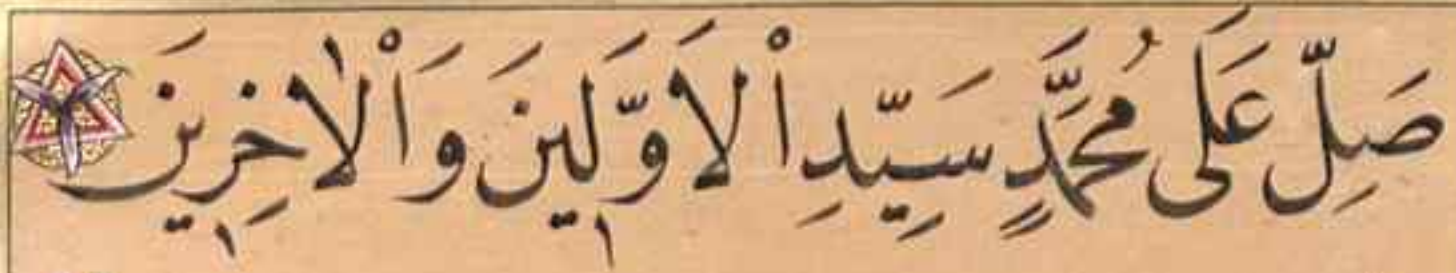 صَلِّ عَلَى مُحَمَّدٍ سَيِّدِ اْلاَوَّلِينَ وَاْلاٰخِرِينَ